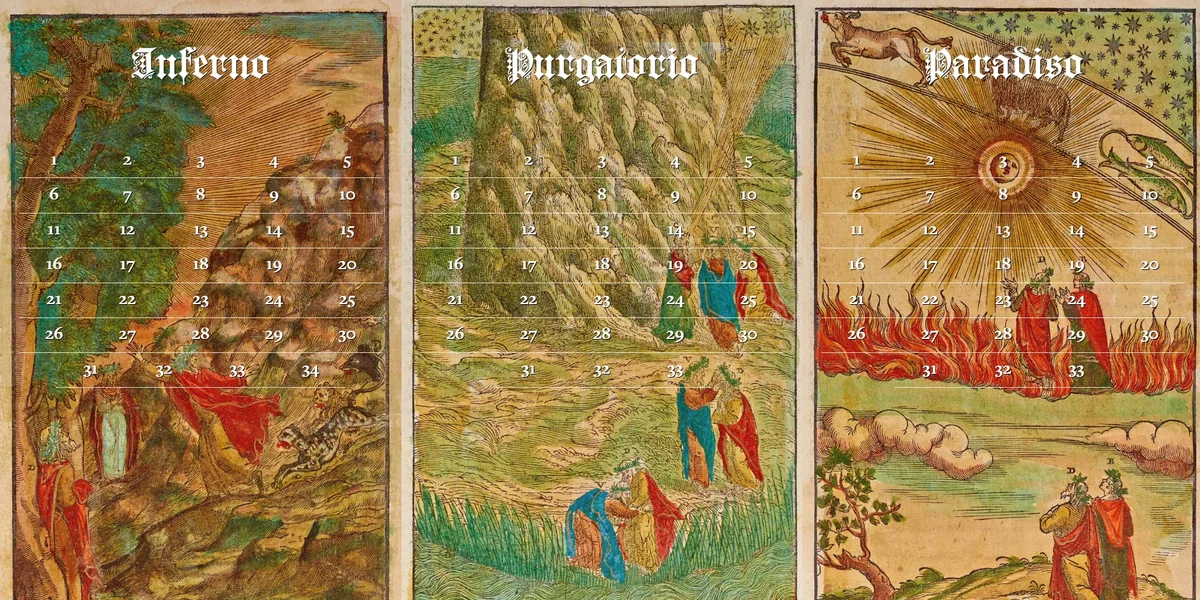 Inferno
1 2 3 4 5
6 7 8 9 10
11 12 13 14 15
16 17 18 19 20
21 22 23 24 25
26 27 28 29 30
31 32 33 34
Purgatorio
1 2 3 4 5
6 7 8 9 10
11 12 13 14 15
16 17 18 19 20
21 22 23 24 25
26 27 28 29 30
31 32 33
Paradiso
1 2 3 4 5
6 7 8 9 10
11 12 13 14 15
16 17 18 19 20
21 22 23 24 25
26 27 28 29 30
31 32 33
D
D B